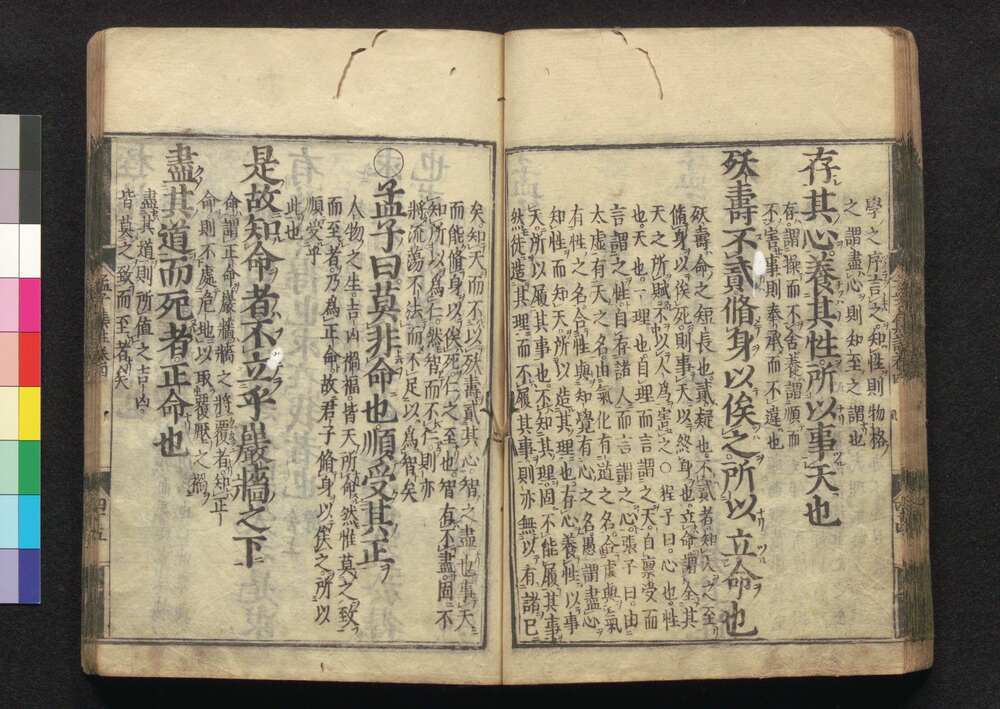 學之序言之知性則物格
之謂盡心則知至之謂也
存其心養其性所以事天也
存謂操而不舍養謂順而
不害事則奉承而不違也
殀壽不貳脩身以俟之所以立命也
殀壽命之短長也貳疑也不貳者知天之至
脩身以俟死則事天以終身也立命謂全其
天之所賦不以人爲害之○程子曰心也性
也天也一理也自理而言謂之天自稟受而
言謂之性自存諸人而言謂之心張子曰由
太虛有天之名由氣化有道之名合虛與氣
有性之名合性與知覺有心之名愚謂盡心
知性而知天所以造其理也存心養性以事
天所以履其事也不知其理固不能履其事
然徒造其理而不履其事則亦無以有諸已
矣知天而不以殀壽貳其心智之盡也事天
而能脩身以俟死仁之至也智有不盡固不
知所以爲仁然智而不仁則亦
將流蕩不法而不足以爲智矣
孟子曰莫非命也順受其正
人物之生吉凶禍福皆天所命然惟莫之致
而至者乃爲正命故君子脩身以俟之所以
順受乎
此也
是故知命者不立乎巖牆之下
命謂正命巖牆牆之將覆者知正
命則不處危地以取覆壓之禍
盡其道而死者正命也
盡其道則所值之吉凶
皆莫之致而至者矣
孟子集註卷四
四十五